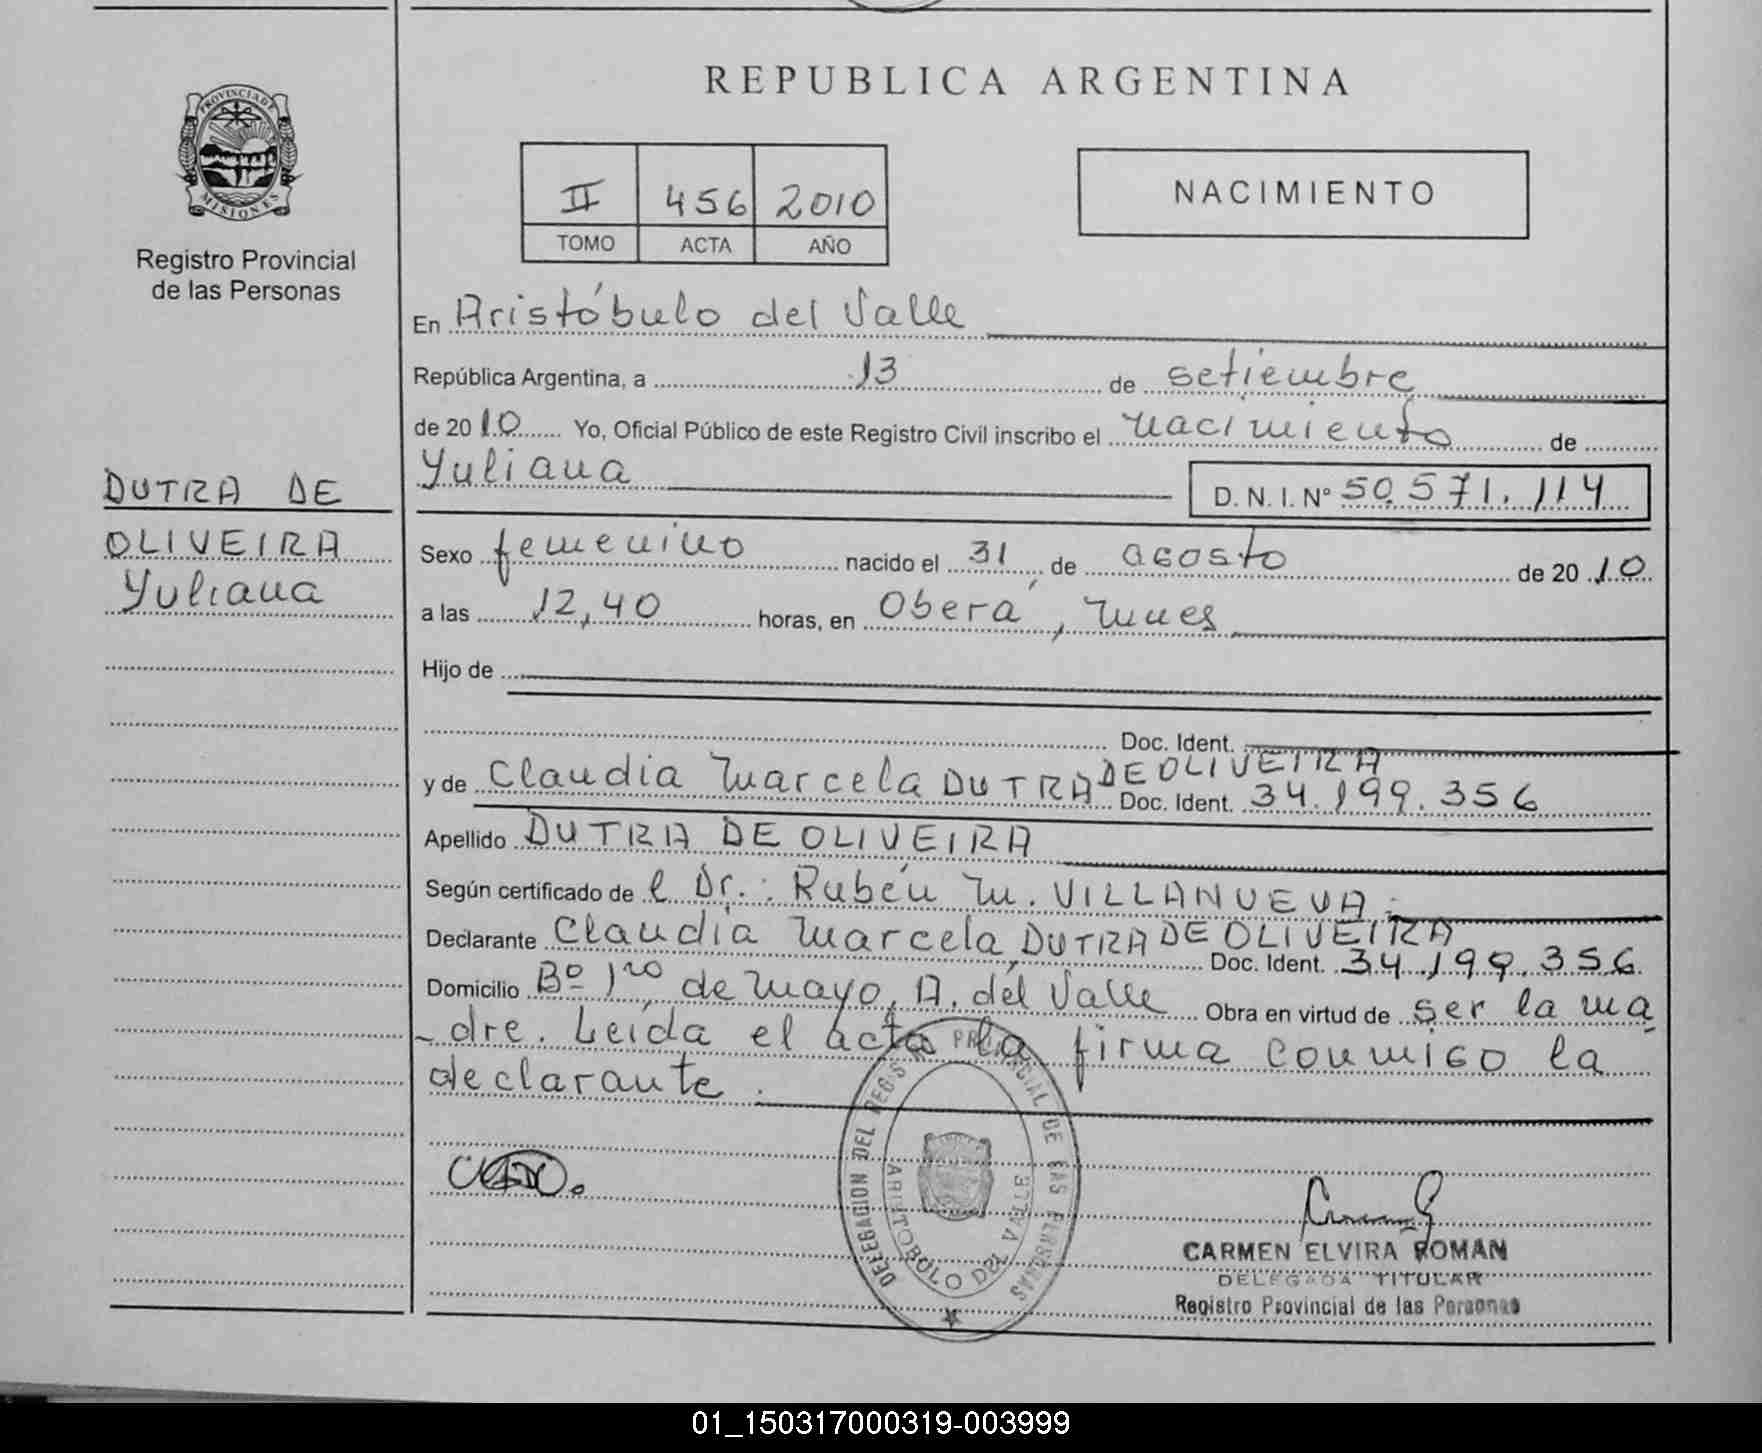 REPUBLICA ARGENTINA
PROVINCIA DE MISIONES
Registro Provincial
de las Personas
II 456 2010
TOMO ACTA AÑO
NACIMIENTO
En Aristóbulo del Valle
República Argentina, a 13 de setiembre
de 2010 Yo, Oficial Público de este Registro Civil inscribo el nacimiento de
Yuliana D. N. I. Nº 50.571.114
DUTRA DE
OLIVEIRA
Yuliana
Sexo femenino nacido el 31 de agosto de 2010
a las 12,40 horas, en Oberá, Mnes
Hijo de
Doc. Ident.
y de Claudia Marcela DUTRA DE OLIVEIRA Doc. Ident. 34.199.356
Apellido DUTRA DE OLIVEIRA
Según certificado de l Dr.: Rubén M. VILLANUEVA.
Declarante Claudia Marcela DUTRA DE OLIVEIRA Doc. Ident. 34.199.356
Domicilio Bº 1ro de Mayo, A. del Valle Obra en virtud de ser la ma
-dre. Leída el acta la firma conmigo la
declarante.
DELEGACION DEL REGISTRO PROVINCIAL DE LAS PERSONAS
ARISTOBULO DEL VALLE
CARMEN ELVIRA ROMAN
DELEGADA TITULAR
Registro Provincial de las Personas
01_150317000319-003999